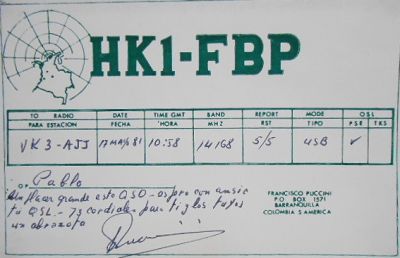 HK1-FBP
TO RADIO DATE TIME GMT BAND REPORT MODE QSL
PARA ESTACION FECHA 'HORA MHZ RST TIPO PSE TKS
VK3-AJJ 17 MAYO 81 10:58 14168 5/5 USB ✓
Pablo
un placer grande este QSO - espero con ansia
tu QSL - 73 cordiales para ti y los tuyos
un abrazote
FRANCISCO PUCCINI
P.O BOX 1571
BARRANQUILLA
COLOMBIA S AMERICA